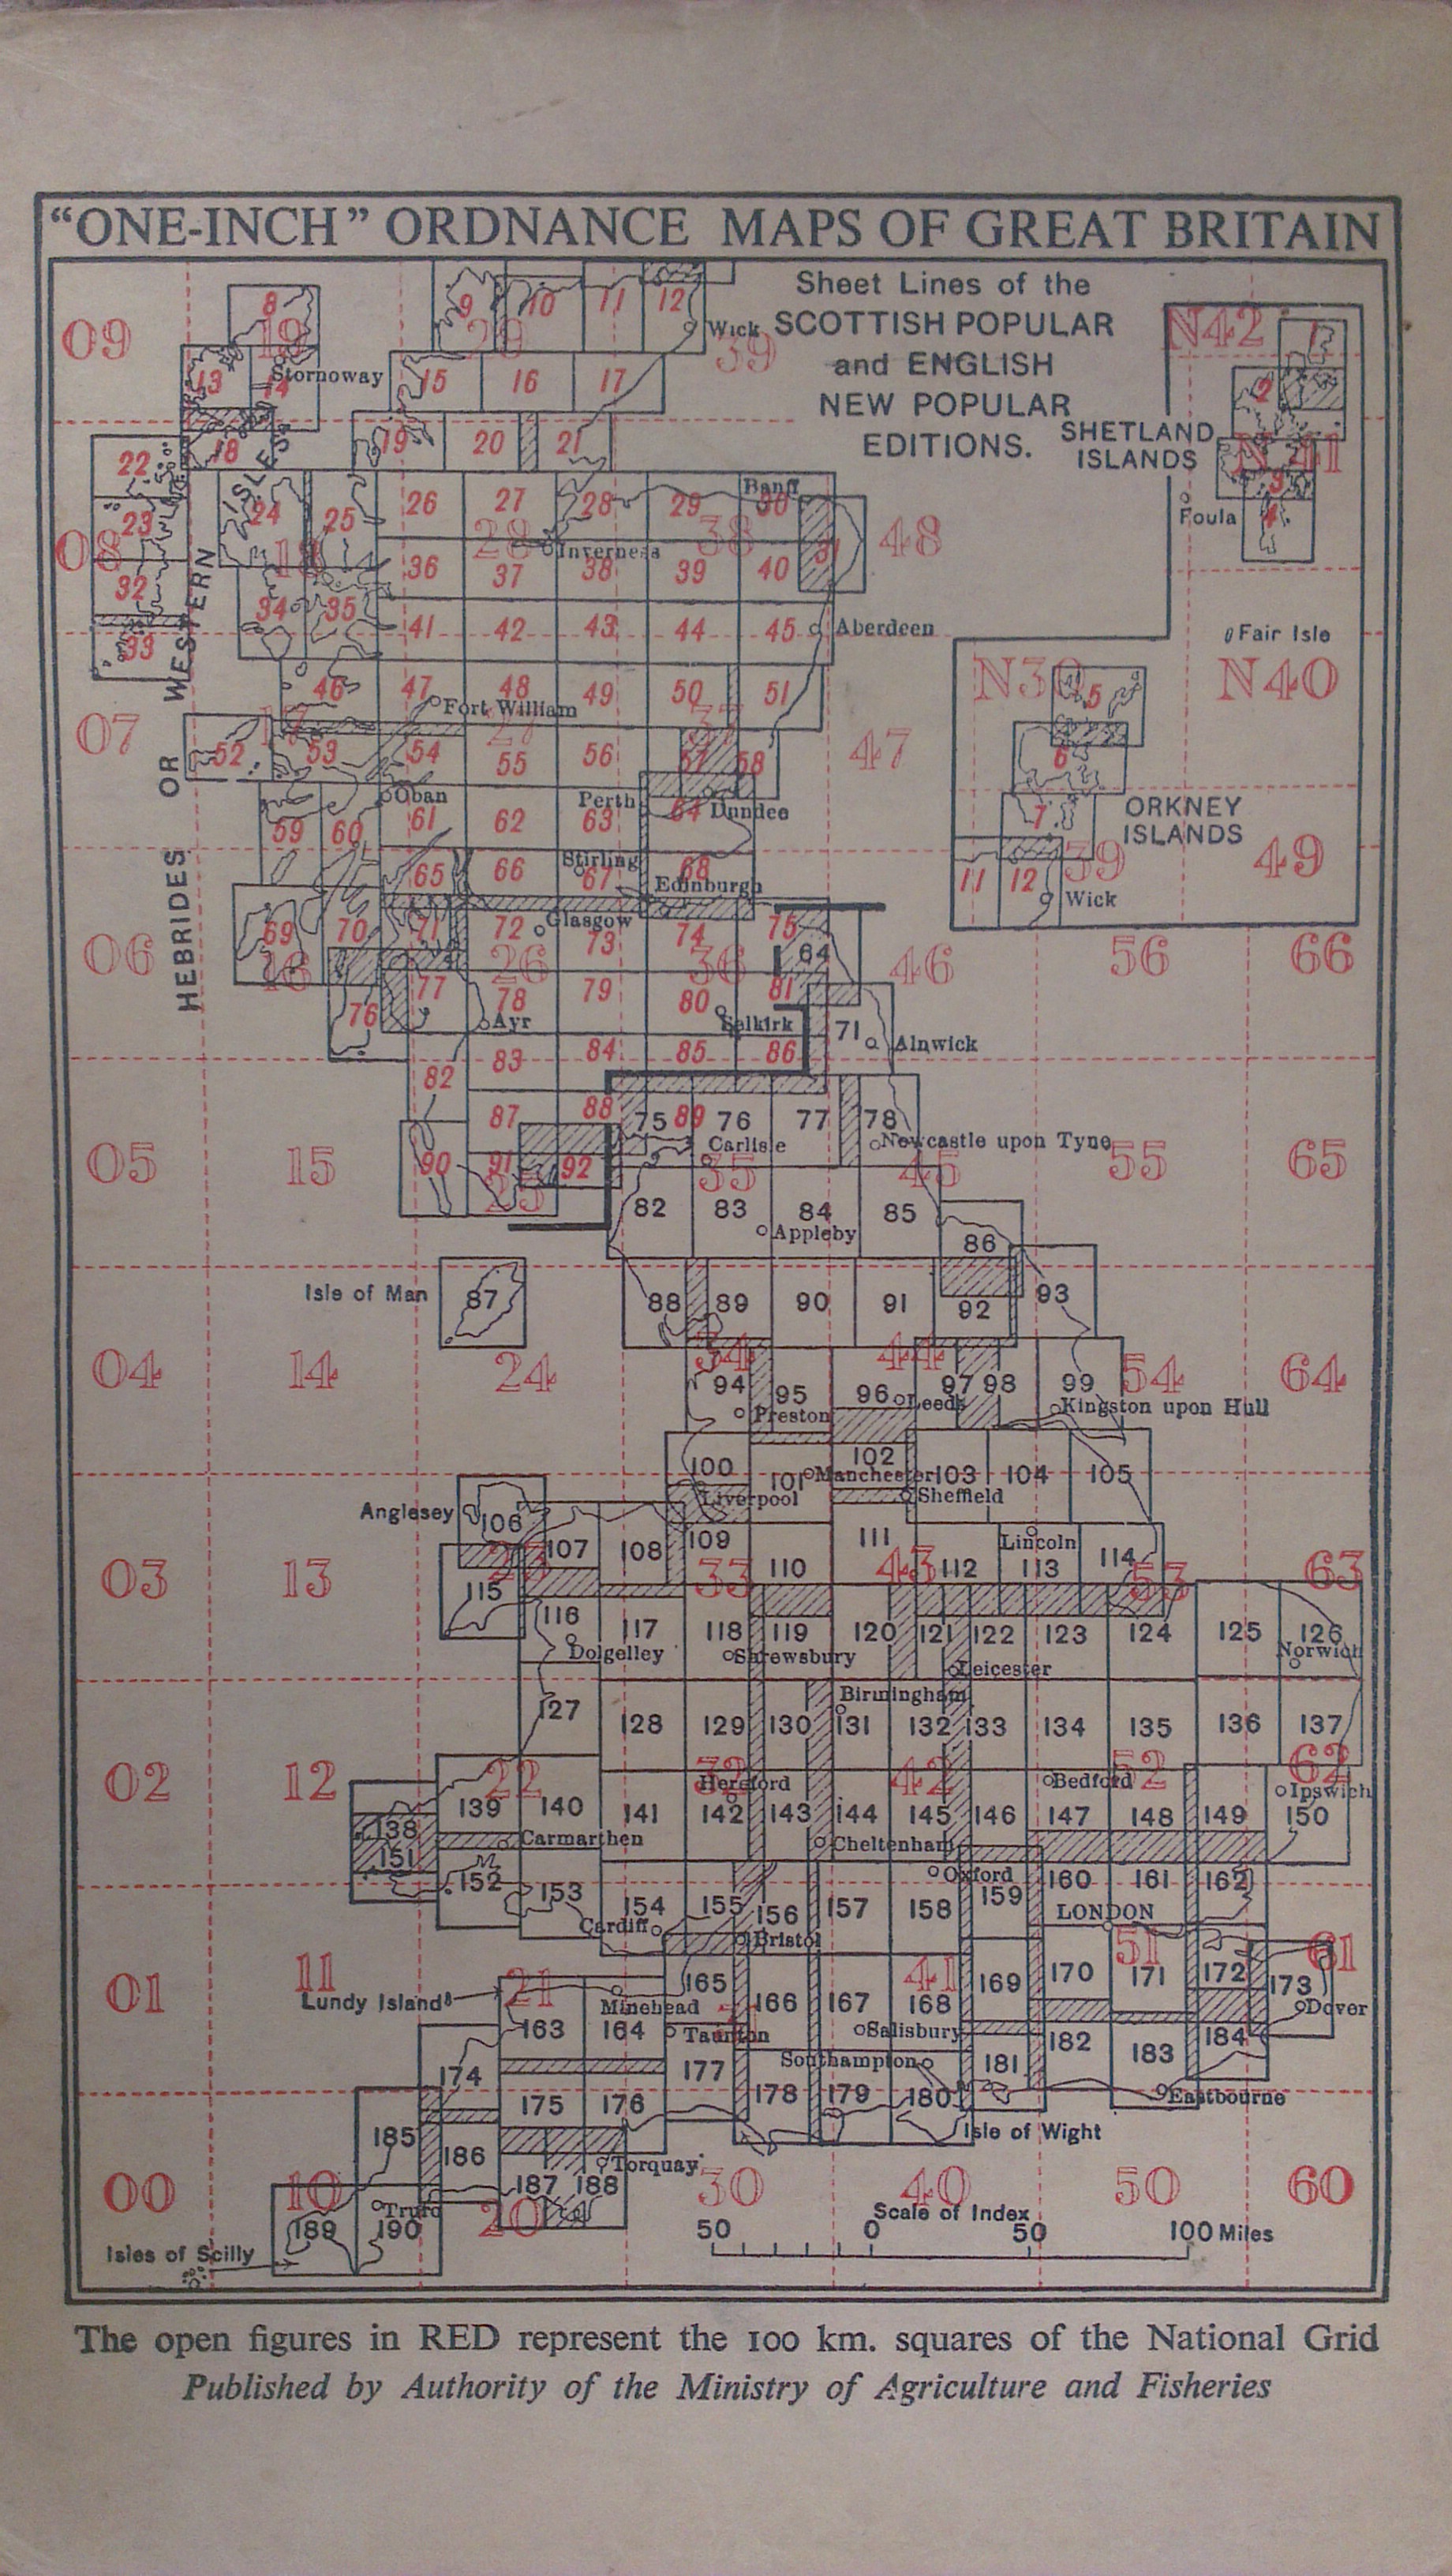 "ONE-INCH" ORDNANCE MAPS OF GREAT BRITAIN
Sheet Lines of the
SCOTTISH POPULAR
and ENGLISH
NEW POPULAR
EDITIONS.
09 19 29 39 N42
8 9 10 11 12 Wick 1
13 14 Stornoway 15 16 17 2
18 19 20 21 SHETLAND
ISLANDS N41
22 3
23 24 25 26 27 28 29 Banff 30 Foula 4
08 18 28 38 48
Inverness
32 34 35 36 37 38 39 40 31
33 41 42 43 44 45 Aberdeen Fair Isle
N39 N40
46 47 48 49 50 51 5
Fort William
07 17 27 37 47
52 53 54 55 56 57 58 6
Oban Perth Dundee
59 60 61 62 63 64 7 ORKNEY
ISLANDS
39 49
65 66 Stirling 67 68 11 12
Edinburgh Wick
HEBRIDES OR WESTERN ISLES
69 70 71 72 Glasgow 73 74 75
06 16 26 36 64 46 56 66
76 77 78 79 80 81
Ayr Selkirk 71 Alnwick
82 83 84 85 86
87 88 75 89 76 77 78
Carlisle Newcastle upon Tyne
05 15 25 35 45 55 65
90 91 92
82 83 84 85
Appleby
86
Isle of Man 87 88 89 90 91 92 93
04 14 24 34 44 54 64
94 95 96 Leeds 97 98 99
Preston Kingston upon Hull
100 101 102 Manchester 103 104 105
Liverpool Sheffield
Anglesey 106 107 108 109 110 111 Lincoln
112 113 114
03 13 23 33 43 53 63
115 116 117 118 119 120 121 122 123 124 125 126
Dolgelley Shrewsbury Leicester Norwich
Birmingham
127 128 129 130 131 132 133 134 135 136 137
02 12 22 32 42 52 62
Hereford Bedford Ipswich
138 139 140 141 142 143 144 145 146 147 148 149 150
Carmarthen Cheltenham
151 152 153 154 155 156 157 158 Oxford 159 160 161 162
Cardiff Bristol LONDON
01 11 21 41 51 61
Lundy Island Minehead 165 166 167 168 169 170 171 172 173
163 164 Taunton Salisbury Dover
174 177 Southampton 181 182 183 184
175 176 178 179 180 Eastbourne
185 186 Isle of Wight
Torquay
187 188
00 10 20 30 40 50 60
189 Truro 190
Isles of Scilly
Scale of Index
50 0 50 100 Miles
The open figures in RED represent the 100 km. squares of the National Grid
Published by Authority of the Ministry of Agriculture and Fisheries